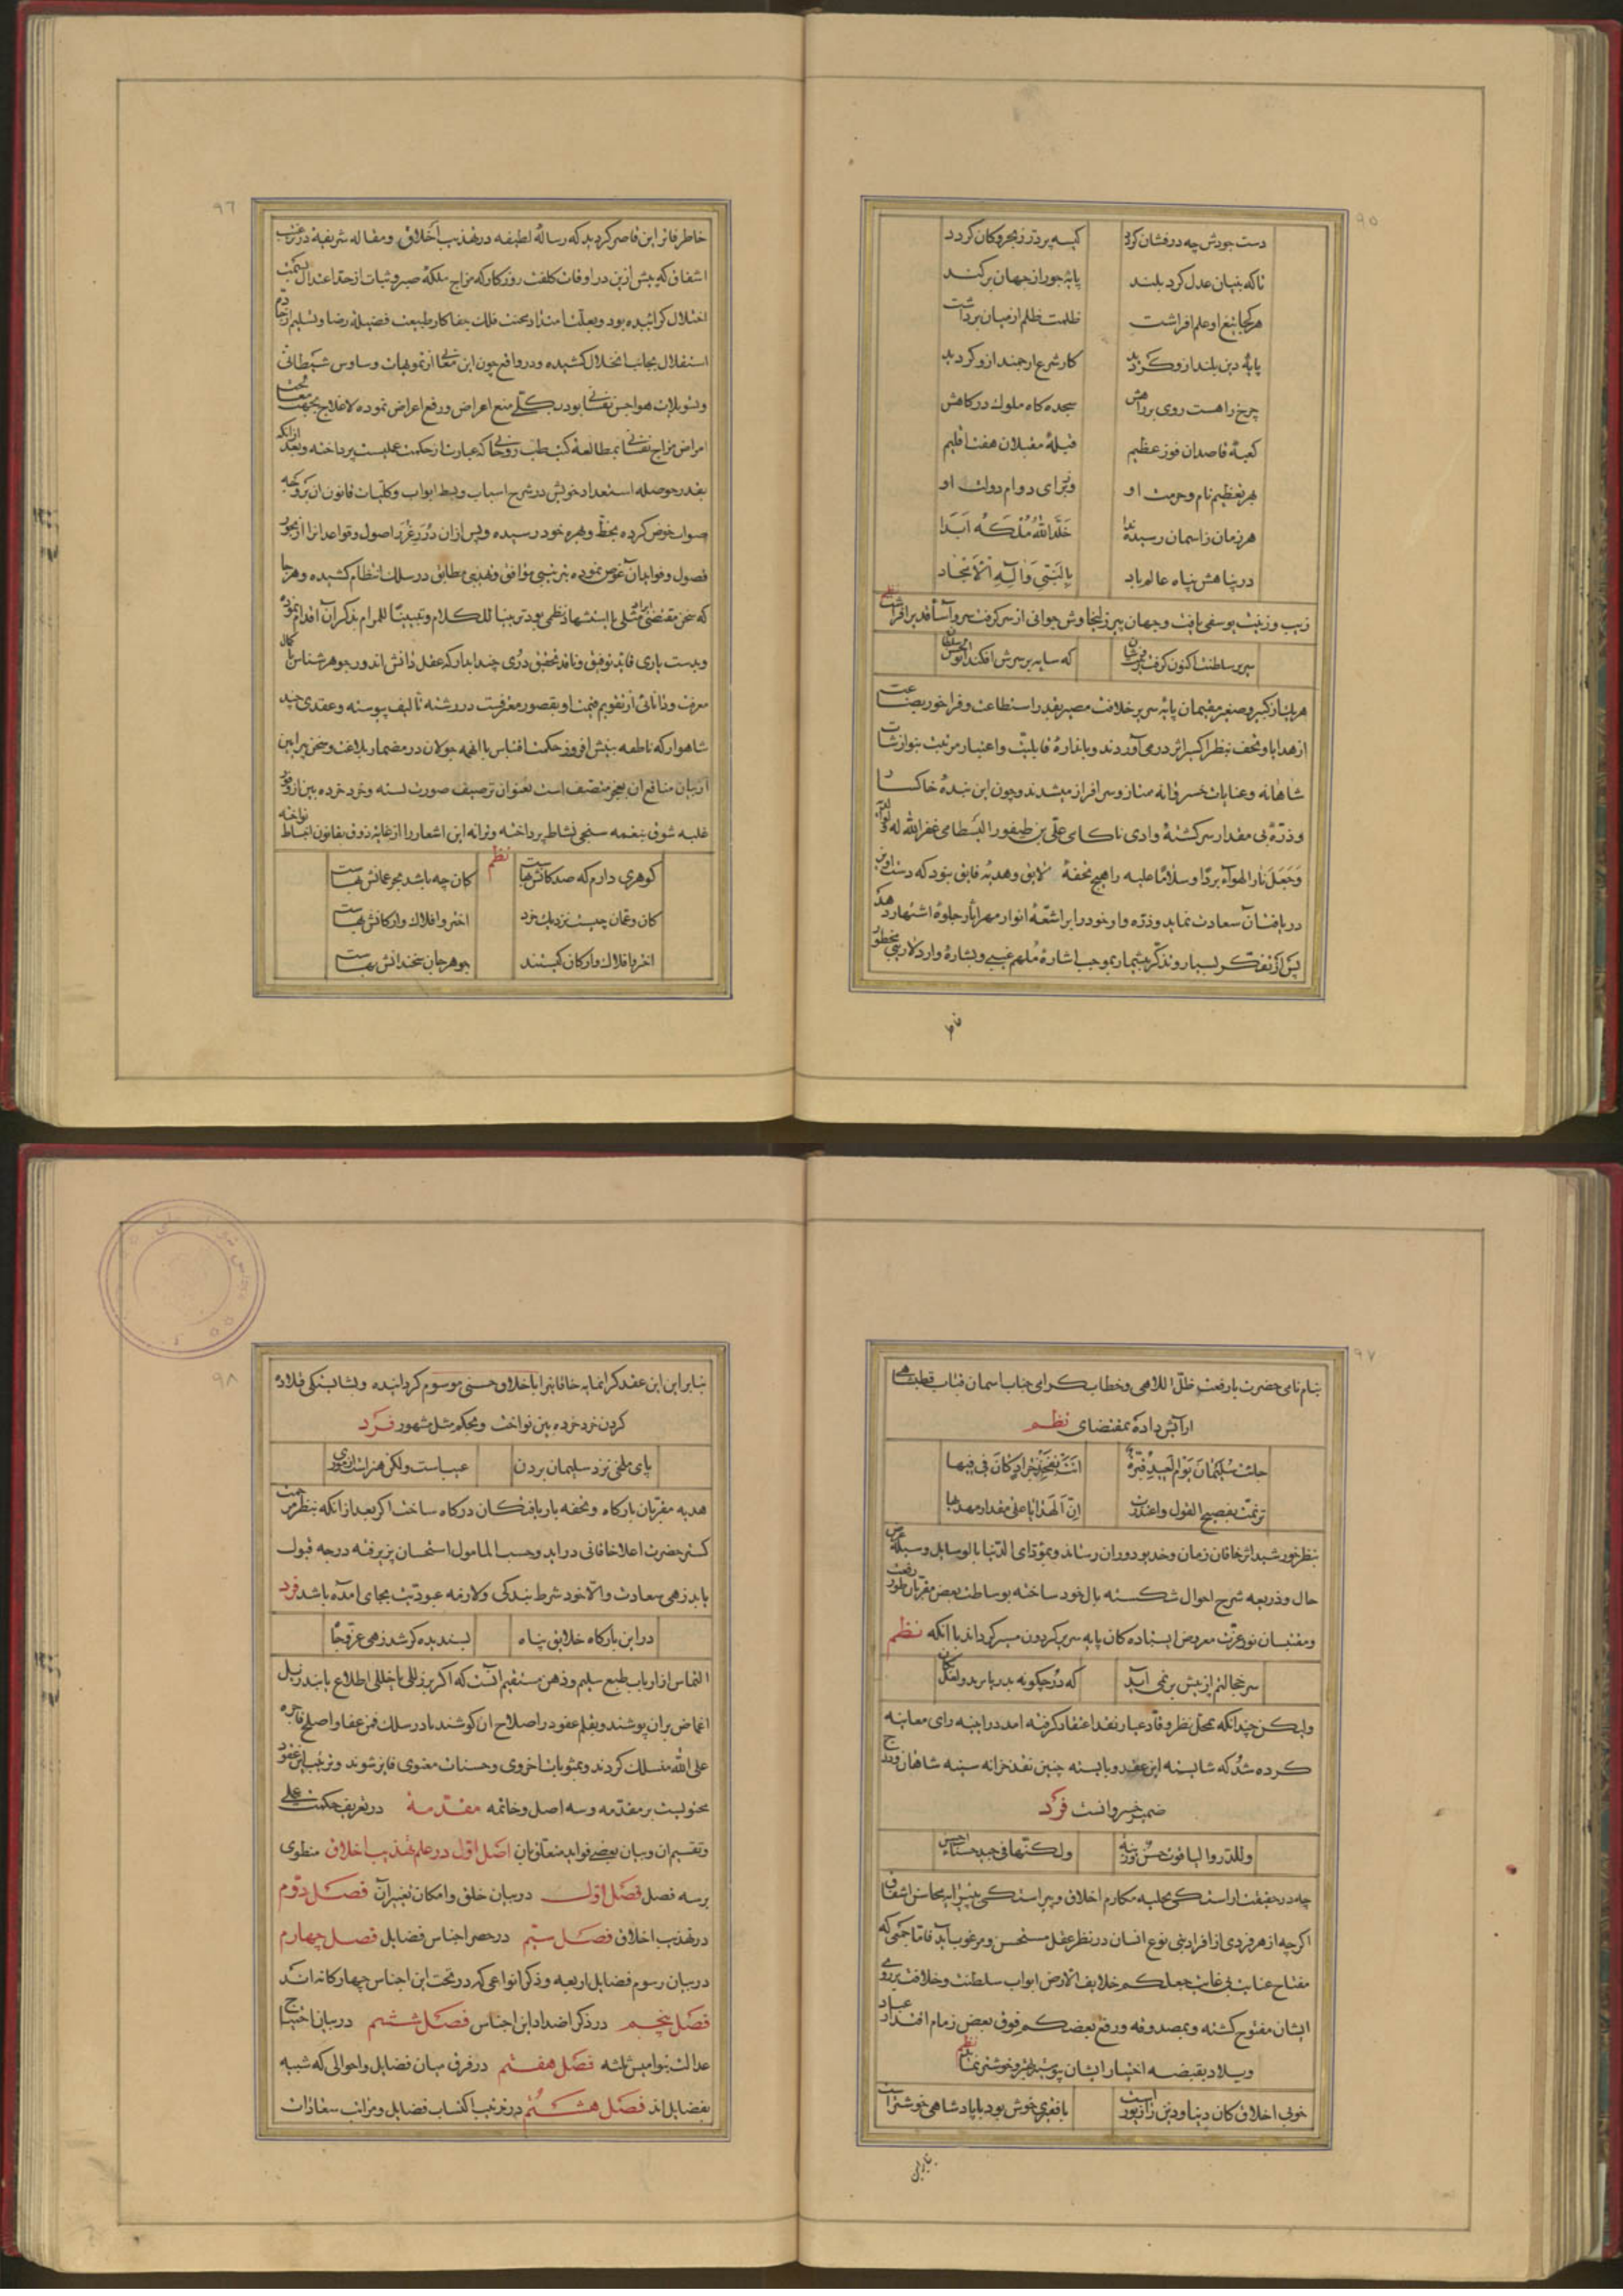 ۹۵
دست جودش چه درفشان گردد کیسه پرداز بحر و کان گردد
تا که بنیان عدل کرد بلند پایهٔ جور از جهان برکند
هر کجا تیغ او علم افراشت ظلمت ظلم از میان برداشت
پایهٔ دین بلند ازو گردید کار شرع ارجمند ازو گردید
چرخ را هست روی بر راهش سجده گاه ملوک درگاهش
کعبهٔ قاصدان فوز عظیم قبلهٔ مقبلان هفت اقلیم
بهر تعظیم نام و حرمت او و ز برای دوام دولت او
هر زمان ز اسمان رسیده ندا خَلَّدَ اللهُ مُلْکَهُ اَبَدَا
در پناهش پناه عالم باد بِالنَّبِیِّ وَآلِهِ الْاَمْجَاد
زیب و زینت یوسفی یافت و جهان پیر زلیخا وش جوانی از سر گرفت سرو آسا قد برافراشت نظم
سریر سلطنت اکنون که سایه بر سرش افکند
هر یک از کبیر و صغیر مقیمان پایهٔ سریر خلافت مصیر بقدر استطاعت و فراخور بضاعت
از هدایا و تحف بنظر اکسیر اثر درمی آوردند و باندازهٔ قابلیت و اعتبار مرتبت بنوازشات
شاهانه و عنایات خسروانه ممتاز و سرافراز میشدند و چون این بندهٔ خاکسار
و ذرّهٔ بی مقدار سرگشتهٔ وادی ناکامی علی بن طیفور البسطامی غفر الله له
وَجَعَلَ نار الهواء بردًا و سلامًا علیه را هیچ تحفهٔ لایق و هدیهٔ فایق نبود که دست اویز
دریافت آن سعادت نماید و ذره وار خود را بر اشعّهٔ انوار مهر آثار جلوهٔ اشتهار دهد
پس از تفکّر بسیار و تذکّر بیشمار بموجب اشارهٔ مُلهم غیبی و بشارهٔ وارد لاریبی بخطور
خاطر
۹٦
خاطر فاتر این قاصر گردید که رسالهٔ لطیفه در تهذیب اخلاق و مقاله شریفه در
اشفاق که پیش ازین در اوقات کلفت روزگار که مزاج ملکهٔ صبر و ثبات از حد اعتدال بسمت
اختلال گرائیده بود و بعلّت امتداد محنت فلک جفاکار طبیعت فضیلهٔ رضا و تسلیم از جادهٔ
استقلال بجانب انحلال کشیده و در واقع چون این معانی از تمویهات وساوس شیطانی
و تسویلات هواجس نفسانی بود در پی منع اعراض و رفع اعراض نموده لاعلاج بجهت
امراض مزاج نفسانی بمطالعهٔ کتب طب روحانی که عبارت از حکمت عملیست پرداخته و بعد از انکه
بقدر حوصله استعداد خویش در شرح اسباب و بسط ابواب و کلیات قانون ان بر وجه
صواب خوض کرده بحظّ و بهره خود رسیده و پس از ان دُرَرِ غُرَرِ اصول و قواعد انرا از بحور
فصول و فواید آن غوص نموده بترتیبی موافق و تهذیبی مطابق در سلک انتظام کشیده و هر جا
که سخن مقتضی ایراد مثلی یا استشهاد نظمی بود تزیینا للکلام و تبیینًا للمرام بذکر آن اقدام نموده
و بدست یاری قاید توفیق و ناقد تحقیق دُرّی چند ابدار که عقل دانش اندوز جوهر شناس با کمال
معرفت و دانائی از تقویم قیمت او بقصور معترفست در رشته تالیف پیوسته و عقدی چند
شاهوار که ناطقه بینش افروز حکمت اقتباس با انهمه جولان در مضمار بلاغت و سخن پیرایی
از بیان منافع ان بعجز متصف است بعنوان ترصیف صورت بسته و خرد خرده بین از وفور
غلبه شوق بنغمه سنجی نشاط پرداخته و ترانه این اشعار را از غایة ذوق بقانون انبساط نواخته
نظم
گوهری دارم که صد کانش بهاست کان چه باشد بحر عمانش بهاست
کان و عمان چیست نزدیک خرد اختر و افلاک و ارکانش بهاست
اختر و افلاک و ارکان کیستند جوهر جان سخندانش بهاست
۹۷
بنام نامی حضرت بارفعت ظلّ اللاهی و خطاب گرامی جناب اسمان قباب قطبشاهی
ارایش داده بمقتضای نظم
جائت سلیمان یوم العید قبّرة اتت بفخذ جراد کان فی فیها
ترنمت بفصیح القول و اعتذرت انّ الهدایا علی مقدار مهدیها
بنظر خورشید اثر خاقان زمان و خدیو دوران رساند و بمؤدای الدنیا بالوسایل وسیلهٔ عرض
حال و ذریعه شرح احوال شکسته بال خود ساخته بوساطت بعض مقربان طور رفعت
و مقتبسان نور عزت معروض ایستاده کان پایه سریر گردون مسیر گرداند با انکه نظم
سر خجالتم از پیش بر نمی آید که دُر چگونه بدریا برد و لعل بکان
و لیکن چندانکه بمحک نظر وقاد عیار نقد اعتقاد گرفته امد در اینه رای معاینه
کرده شد که شایسته این عقد و بایسته چنین نقد خزانه سینه شاهان و درج
ضمیر خسروانست فَرد
وللدر والیاقوت حسن و زینة ولکنها فی جید حسناء احسن
چه در حقیقت اراستگی بحلیه مکارم اخلاق و پیراستگی بپیرایه محاسن اشفاق
اگرچه از هر فردی از افراد بنی نوع انسان در نظر عقل مستحسن و مرغوب آید فاما جمعی که
مفتاح عنایت بی غایت جعلکم خلایف الارض ابواب سلطنت و خلافت بر روی
ایشان مفتوح گشته و بمصدوقه و رفع بعضکم فوق بعض زمام اقتدار عباد
و بلاد بقبضه اختیار ایشان سپرده بهتر و خوشتر نماید نظم
خوبی اخلاق کان دنیا و دین را زیور است با فقیری خوش بود با پادشاهی خوشتر است
بنابراین
۹۸
بنابراین این عقد گرانمایه خاقانیرا باخلاق حسنی موسوم گردانیده و بشایستگی قلادهٔ
گردن خرد خرده بین نواخت و بحکم مثل مشهور فَرد
پای ملخی نزد سلیمان بردن عیب است ولیکن هنر است از موری
هدیه مقربان بارگاه و تحفه باریافتگان درگاه ساخت اگر بعد از انکه بنظر مرحمت
گستر حضرت اعلا خاقانی در اید و حسب المامول استحسان پزیرفته درجه قبول
یابد زهی سعادت و الّا خود شرط بندگی و لازمه عبودیت بجای امده باشد فرد
در این بارگاه خلایق پناه پسندیده گر شد زهی عز و جاه
التماس از ارباب طبع سلیم و ذهن مستقیم آنست که اگر بر زللی یا خللی اطلاع یابند ذیل
اغماض بران پوشند و بقلم عفو در اصلاح ان کوشند تا در سلک فمن عفا و اصلح فاجره
علی الله منسلک گردند و بمثوبات اخروی و حسنات معنوی فایز شوند و ترتیب این عقود
محتویست بر مقدمه و سه اصل و خاتمه مقدّمهٔ در تعریف حکمت عملی
و تقسیم ان و بیان بعضی فواید متعلق بان اصل اوّل در علم تهذیب اخلاق منطوی
بر سه فصل فصل اوّل در بیان خلق و امکان تغییر آن فصل دوّم
در تهذیب اخلاق فصل سیّم در حصر اجناس فضایل فصل چهارم
در بیان رسوم فضایل اربعه و ذکر انواعی که در تحت این اجناس چهار گانه اند
فصل پنجم در ذکر اضداد این اجناس فصل ششم در بیان احتیاج
عدالت بنوامیس ثلثه فصل هفتم در فرق میان فضایل و احوالی که شبیه
بفضایل اند فصل هشتم در ترتیب اکتساب فضایل و مراتب سعادات